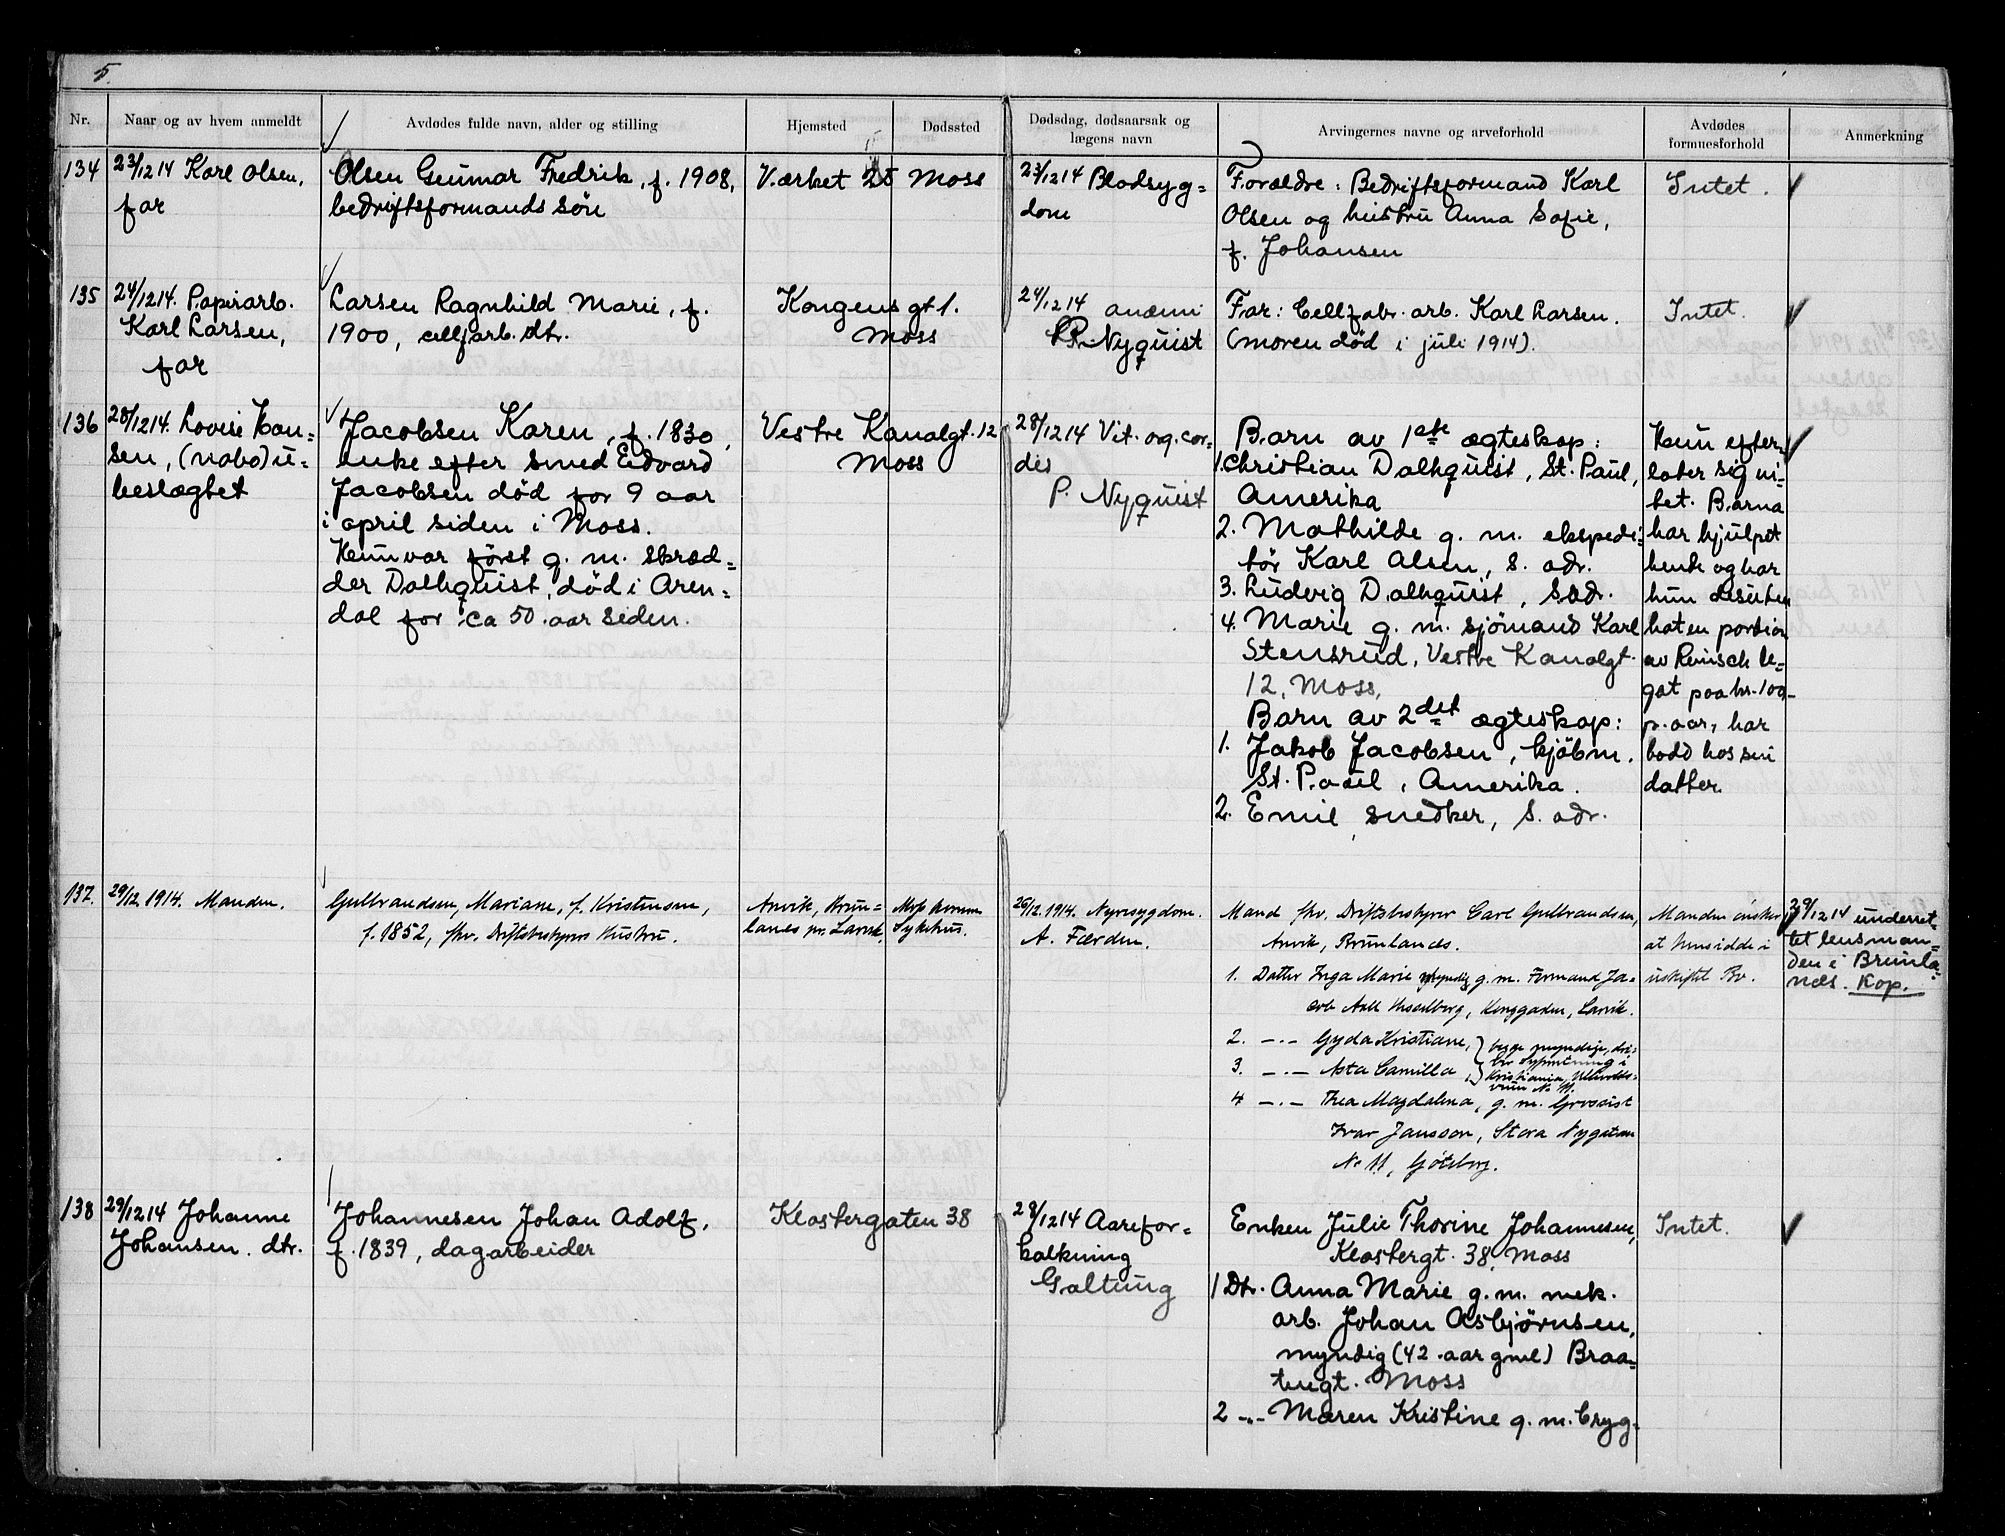 5.
Nr.
Naar og av hvem anmeldt
Avdødes fulde navn, alder og stilling
Hjemsted
Dødssted
Dødsdag, dødsaarsak og
lægens navn
Arvingernes navne og arveforhold
Avdødes
formuesforhold
Anmerkning
134
23/12 14 Karl Olsen,
far
Olsen Gunnar Fredrik, f. 1908,
bedriftsformands søn
Værket 25 Moss
23/12 14 Blodsyg=
dom
Forældre: Bedriftsformand Karl
Olsen og hustru Anna Sofie,
f. Johansen
Intet.
135
24/12 14. Papirarb.
Karl Larsen,
far
Larsen Ragnhild Marie, f.
1900, cellfarb. dtr.
Kongens gt 1.
Moss
24/12 14 anæmi
P. Nyquist
Far: Cellfabr. arb. Karl Larsen.
(moren død i juli 1914).
Intet.
136
28/12 14. Lovise Han=
sen, (nabo) u=
beslægtet
Jacobsen Karen, f. 1830,
enke efter smed Edvard
Jacobsen død for 9 aar
i april siden i Moss.
Hun var først g. m. skræd=
der Dalhquist, død i Aren=
dal for ca 50 aar siden.
Vestre Kanalgt. 12
Moss
28/12 14 Vit. org. cor=
dis
P. Nyquist
Barn av 1ste ægteskap:
1. Christian Dalhquist, St. Paul,
Amerika
2. Mathilde g. m. ekspedi=
tør Karl Olsen, s. adr.
3. Ludvig Dalhquist, s adr.
4. Marie g. m. sjömand Karl
Stensrud, Vestre Kanalgt.
12, Moss.
Barn av 2det ægteskap:
1. Jakob Jacobsen, kjöbm.
St. Paul, Amerika.
2. Emil, snedker, s. adr.
Hun efter
later sig in=
tet. Barna
har hjulpet
hende og har
hun desuten
hat en portion
av Reinsch le=
gat paa kr. 100,-
p. aar, har
bodd hos sin
datter.
137.
29/12 1914. Manden.
Gulbrandsen, Mariane, f. Kristensen,
f. 1852, fhv. Driftsbestyrers Hustru.
Anvik, Brun=
lanes pr. Larvik,
Moss komm
Sykehus.
26/12 1914. Nyresygdom.
A. Færden.
Mand fhv. Driftsbestyrer Carl Gulbrandsen,
Anvik, Brunlanes.
1. Datter Inga Marie myndig g. m. Formand Ja=
2. -.- Gyda Kristiane,
3. -.- Asta Camilla
begge myndige, dri=
ver Syforretning i
Kristiania, Ullevolds=
veien No 11.
4 -.- Thea Magdalena, g. m. Grossist
Ivar Jansson, Stora Nygatan
No 11, Göteborg.
Manden ønsker
at hensidde i
uskiftet Bo.
29/12 14 underret=
tet lensman=
den i Brunla=
næs. Kop.
138
29/12 14 Johanne
Johansen. dtr.
Johannesen Johan Adolf,
f. 1839, dagarbeider
Klostergaten 38
28/12 14 Aarefor=
kalkning
Galtung
Enken Julie Thorine Johannesen,
Klostergt. 38, Moss
1 Dtr. Anna Marie g. m. mek.
arb. Johan Asbjørnsen,
myndig (42 aar gml) Braa=
tengt. Moss
2 -.- Maren Kristine g. m. bryg=
Intet.